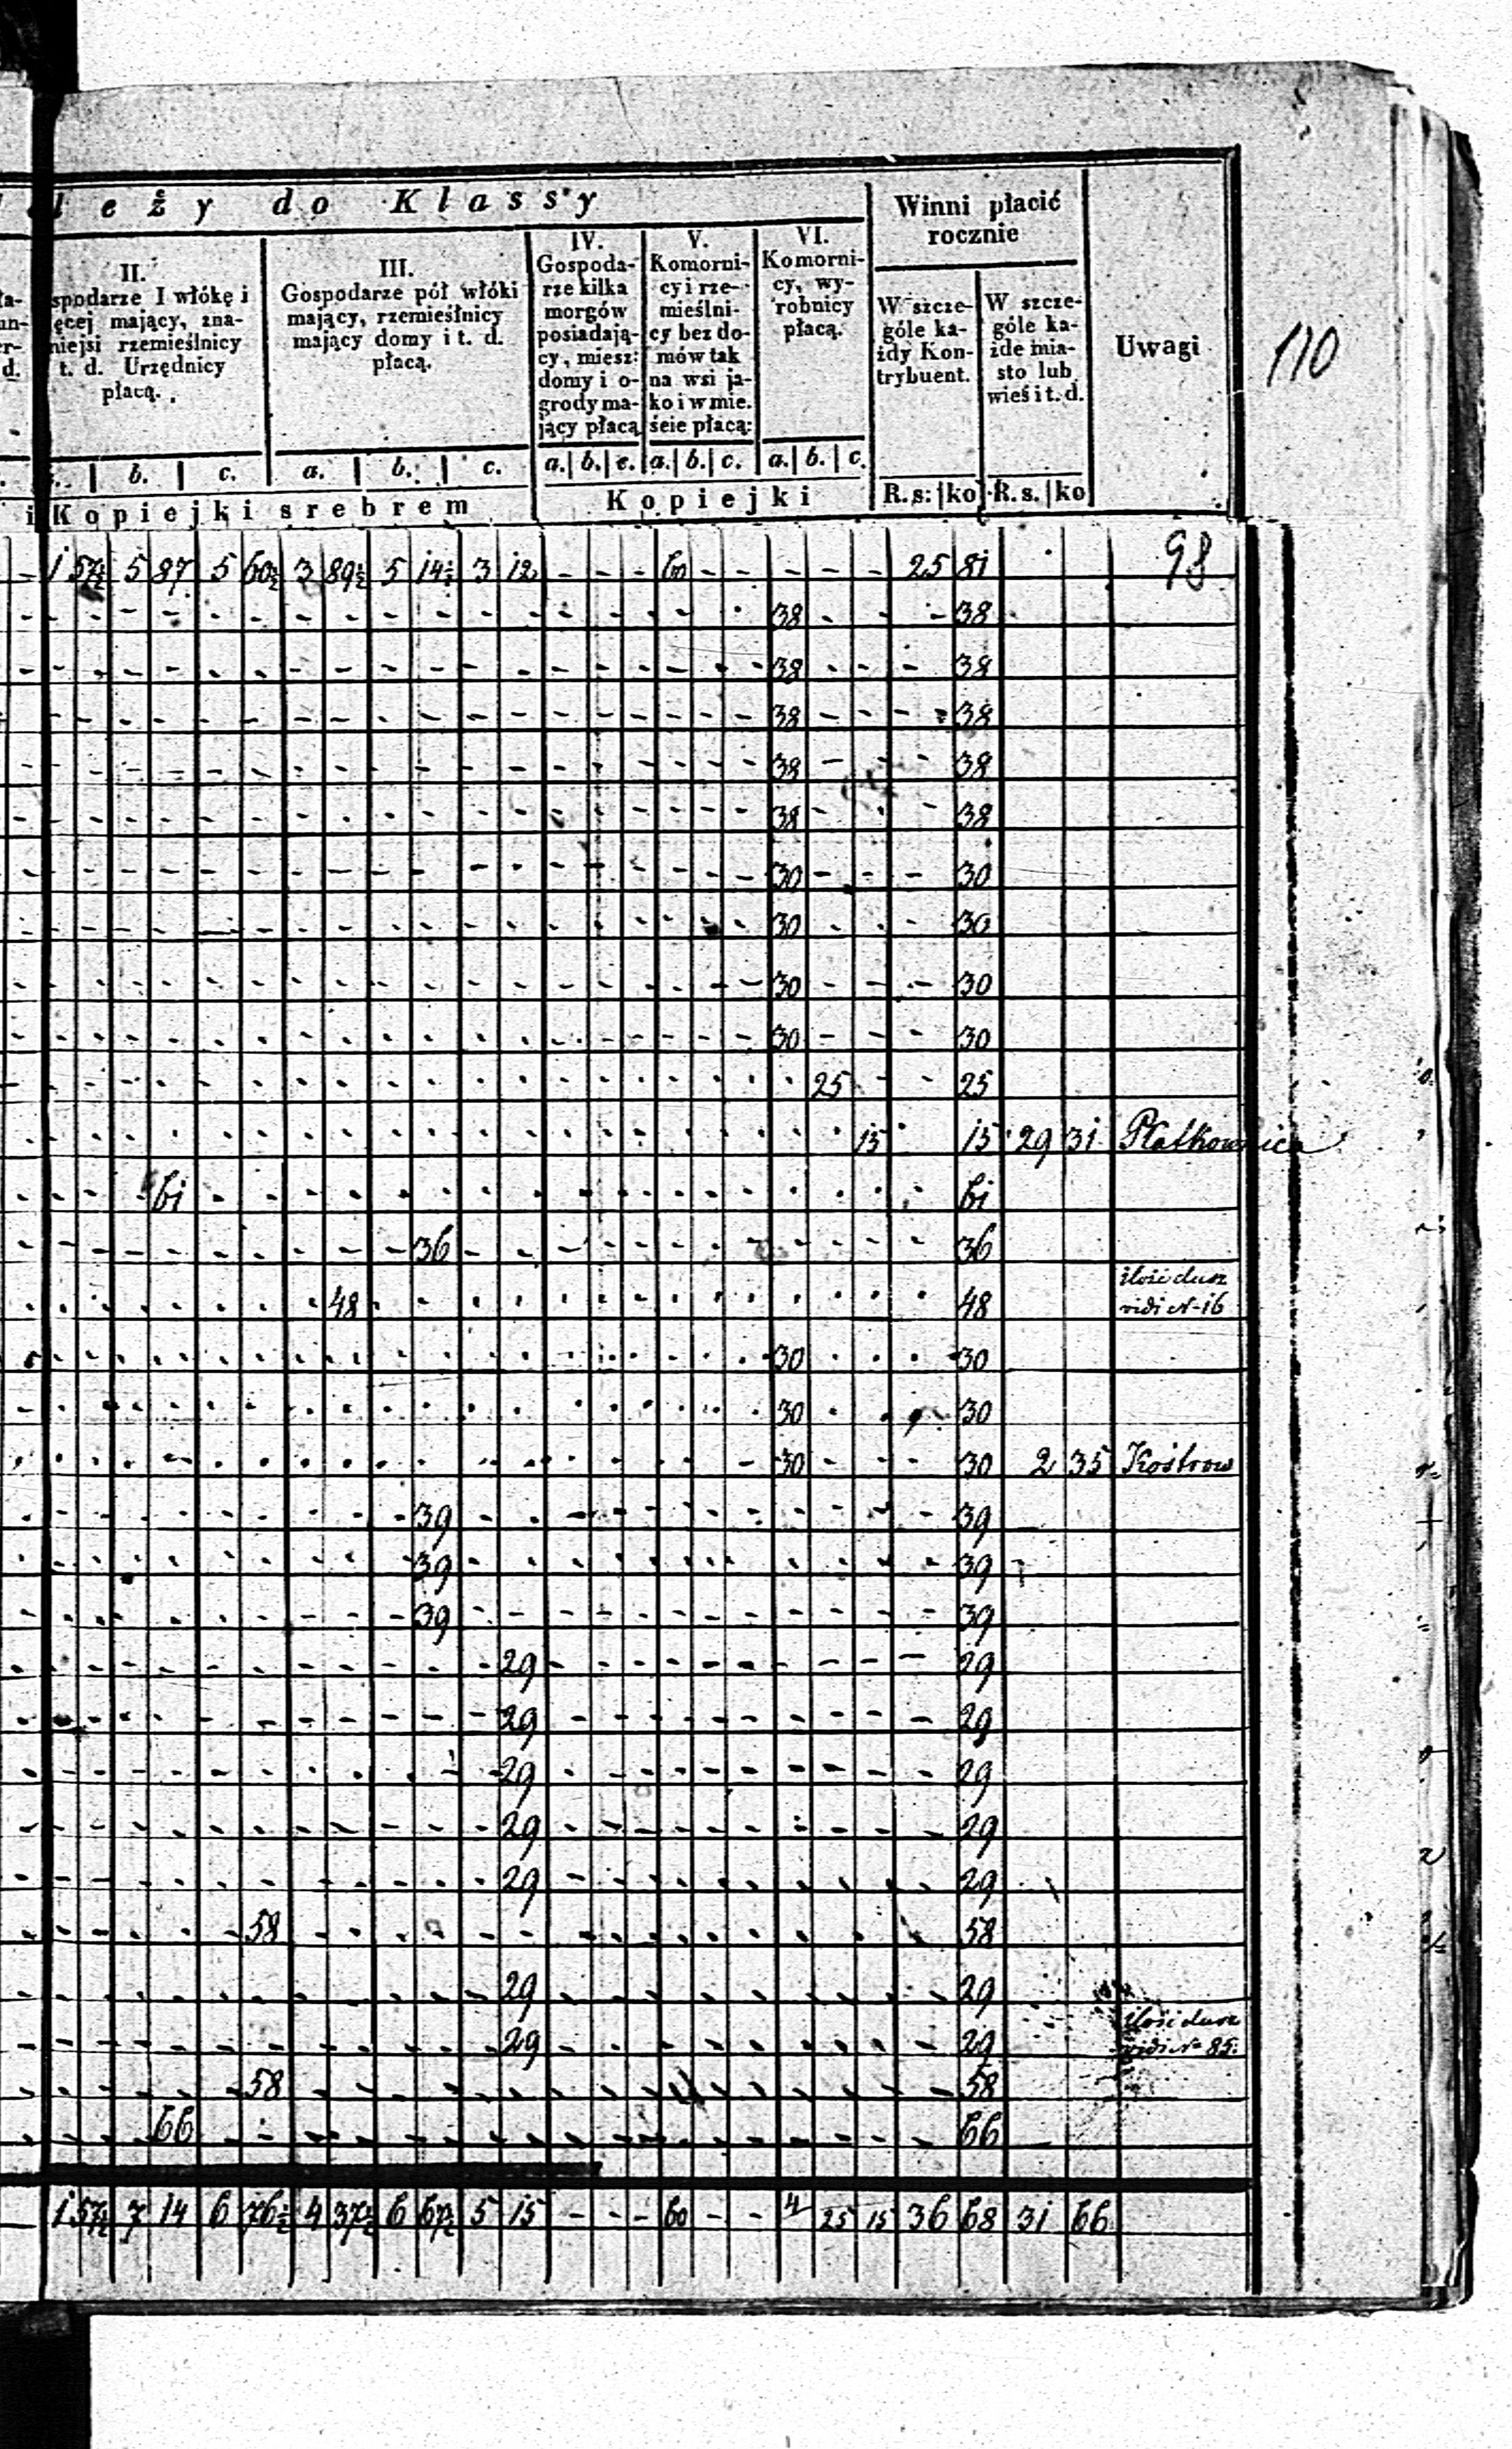 l e ż y d o K l a s s y
Winni płacić
rocznie
Uwagi
110
II.
spodarze I włókę i
ęcej mający, zna-
niejsi rzemieślnicy
t. d. Urzędnicy
płacą.
III.
Gospodarze pół włóki
mający, rzemieślnicy
mający domy i t. d.
płacą.
IV.
Gospoda-
rze kilka
morgów
posiadają-
cy, miesz:
domy i o-
grody ma-
jący płacą
V.
Komorni-
cy i rze-
mieślni-
cy bez do-
mów tak
na wsi ja-
ko i w mie.
ście płacą:
VI.
Komorni-
cy, wy-
robnicy
płacą.
W szcze-
góle ka-
żdy Kon-
trybuent.
W szcze-
góle ka-
żde mia-
sto lub
wieś i t. d.
b. c. a. b. c. a. b. c. a. b. c. a. b. c.
i K o p i e j k i s r e b r e m K o p i e j k i R. s: ko R. s. ko
1 57½ 5 87 5 60½ 3 89½ 5 14½ 3 12 - - - 60 - - - - - 25 81 98
38 - - - 38
38 - - - 38
38 - - - 38
38 - - - 38
38 - - - 38
30 - - - 30
30 - - - 30
30 - - - 30
30 - - - 30
25 - - 25
15 15 29 31 Płatkownica
61 61
36 36
48 48 ilość dusz
vidi N-16
30 30
30 30
30 30 2 35 Kostrow
39 39
39 39
39 39
29 29
29 29
29 29
29 29
29 29
58 58
29 29
29 29 ilość dusz
vidi N 85.
58 58
66 66
1 57½ 7 14 6 76½ 4 37½ 6 67½ 5 15 - - - 60 - - 4 25 15 36 68 31 66